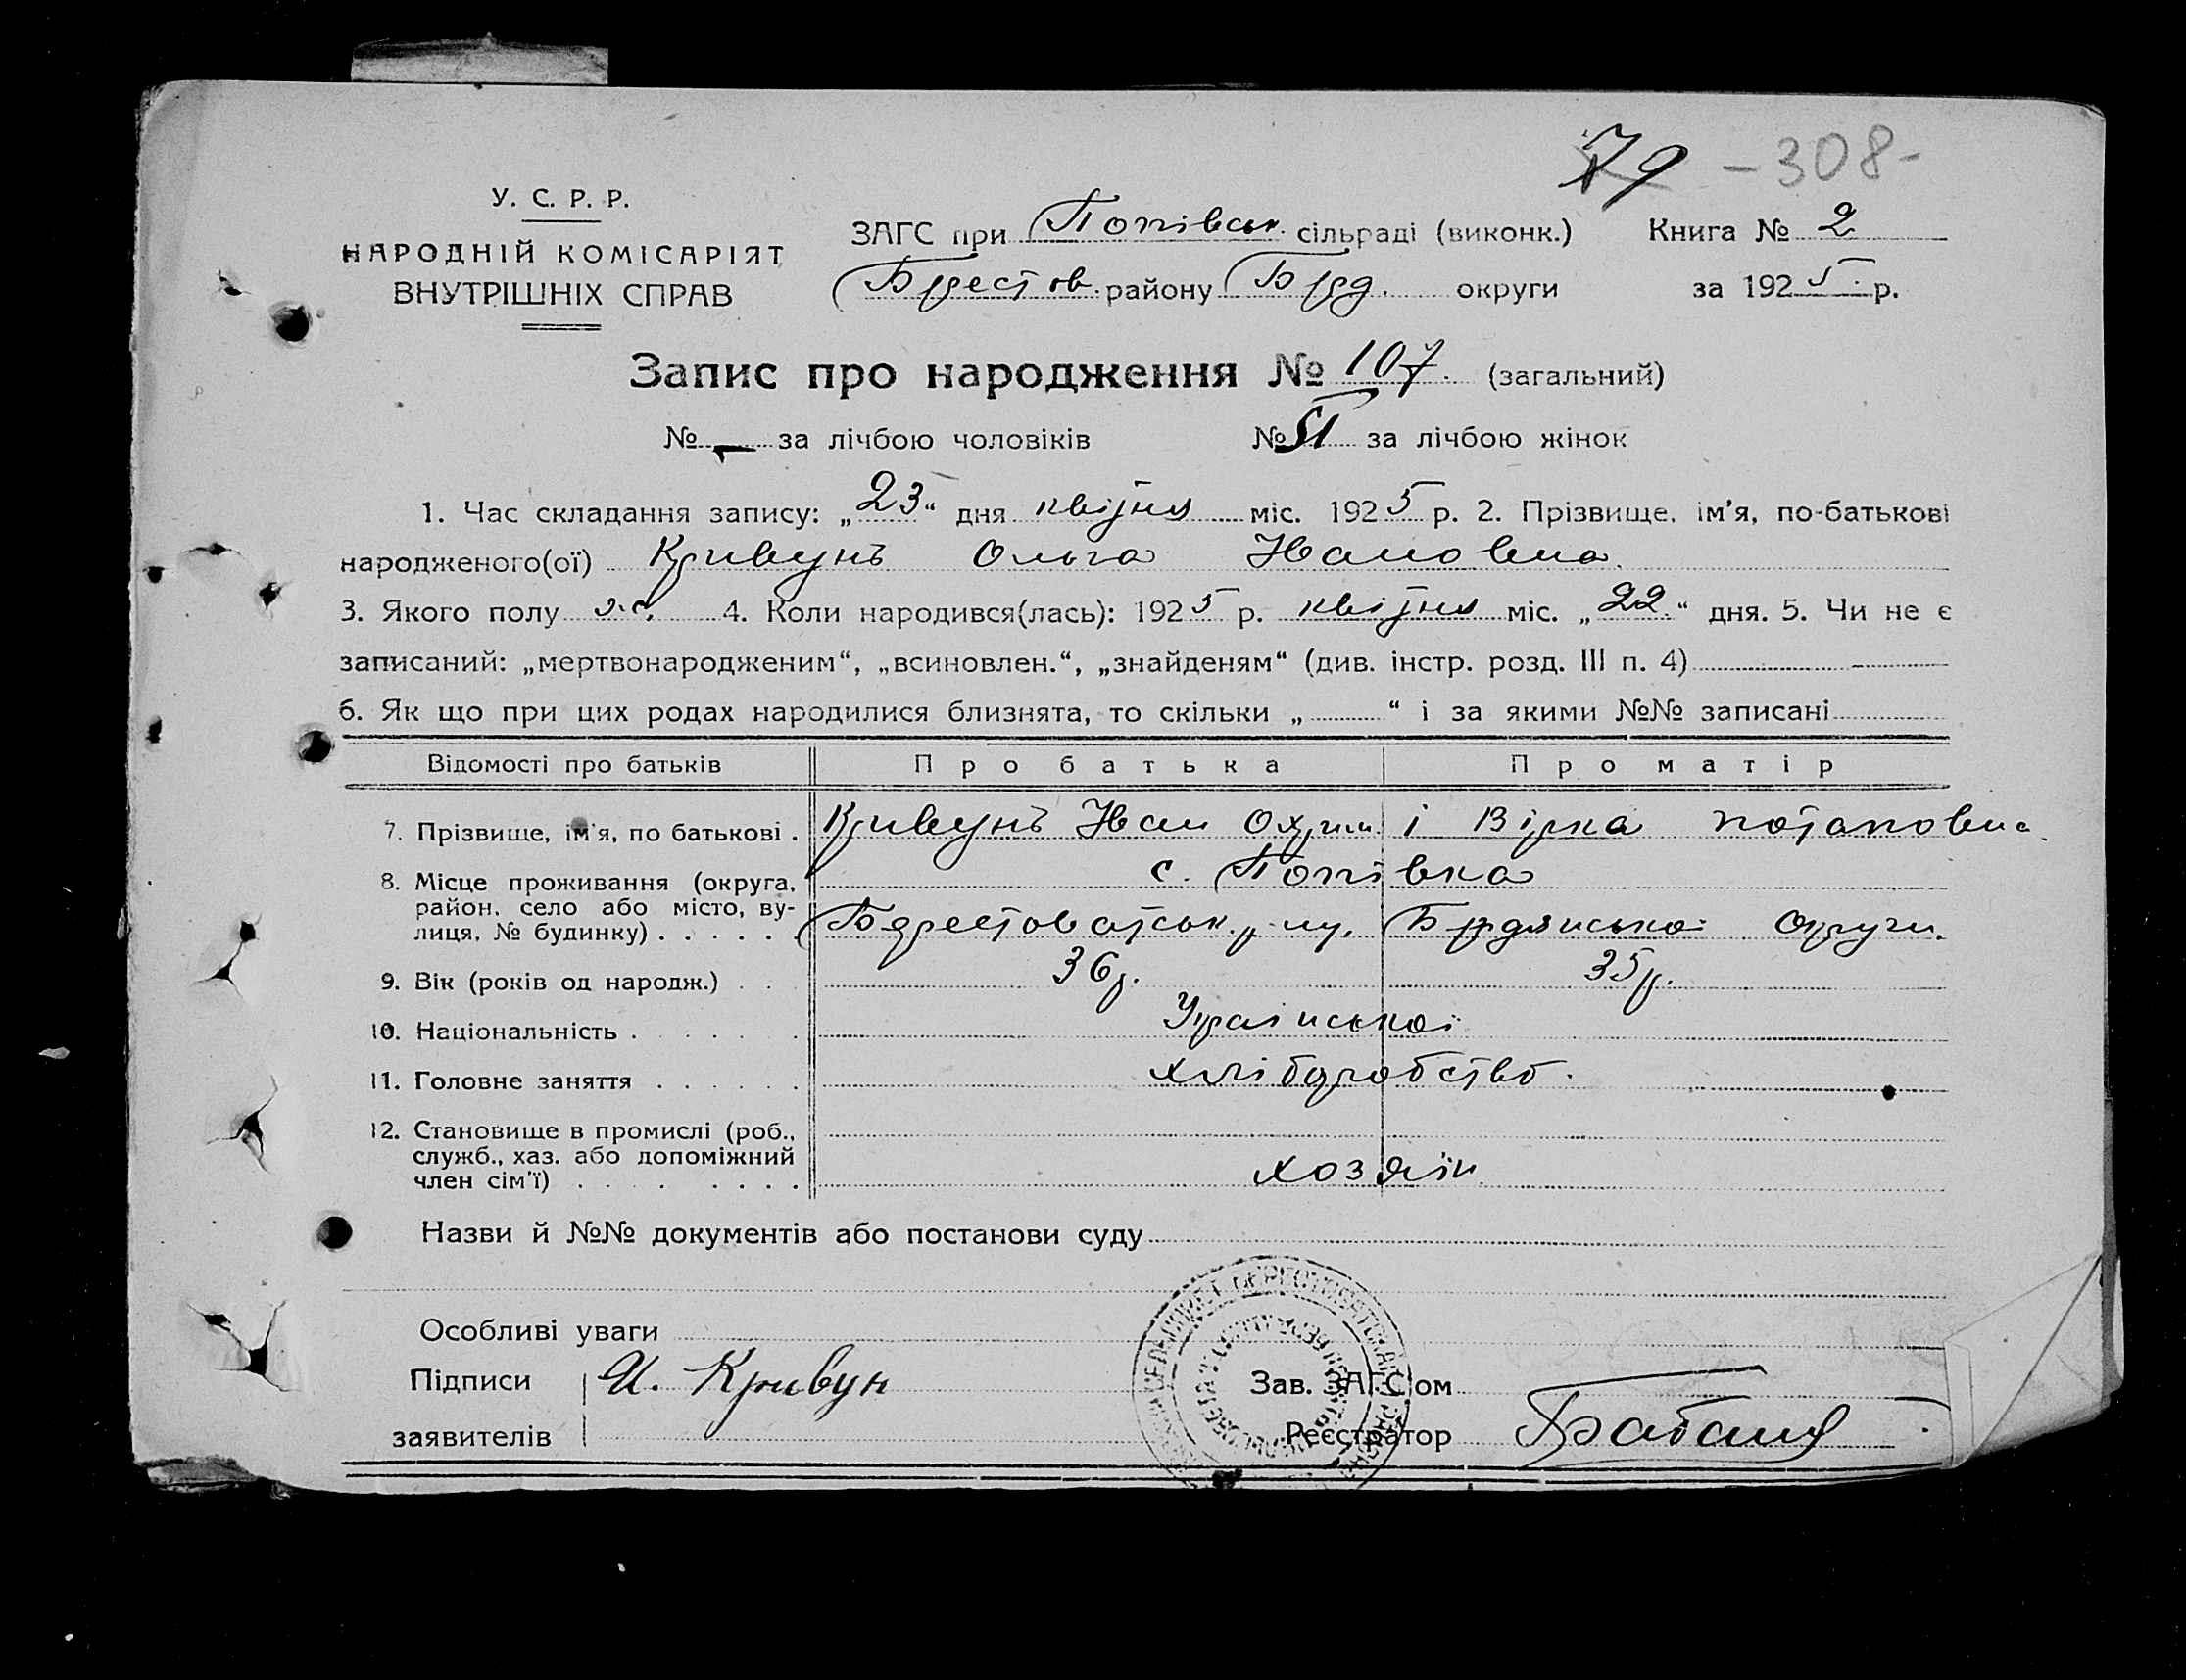 79 -308-
У. С. Р. Р.
НАРОДНІЙ КОМІСАРІЯТ
ВНУТРІШНІХ СПРАВ
ЗАГС при Попівськ. сільраді (виконк.) Книга № 2
Брестов. району Брд. округи за 1925 р.
Запис про народження № 107. (загальний)
№ – за лічбою чоловіків № 51 за лічбою жінок
1. Час складання запису: „23“ дня квітня міс. 1925 р. 2. Прізвище, ім'я, по-батькові
народженого(ої) Кривунъ Ольга Ивановна.
3. Якого полу ж. 4. Коли народився(лась): 1925 р. квітня міс. „22“ дня. 5. Чи не є
записаний: „мертвонародженим“, „всиновлен.“, „знайденям“ (див. інстр. розд. III п. 4)
6. Як що при цих родах народилися близнята, то скільки „ “ і за якими №№ записані
Відомості про батьків Про батька Про матір
7. Прізвище, ім'я, по батькові . Кривунъ Иван Охрим. і Вірка Потаповна.
8. Місце проживання (округа, с. Попівка
район, село або місто, ву-
лиця, № будинку) . . . . . . Бердянської Округи.
9. Вік (років од народж.) . . 36р. 35р.
10. Національність . . . . . Української
11. Головне заняття . . . . . . хліборобство.
12. Становище в промислі (роб.,
служб., хаз. або допоміжний
член сім'ї) . . . . . . . . хозяїн.
Назви й №№ документів або постанови суду
Особливі уваги
Підписи И. Кривун Зав. ЗАГС'ом
заявителів Реєстратор